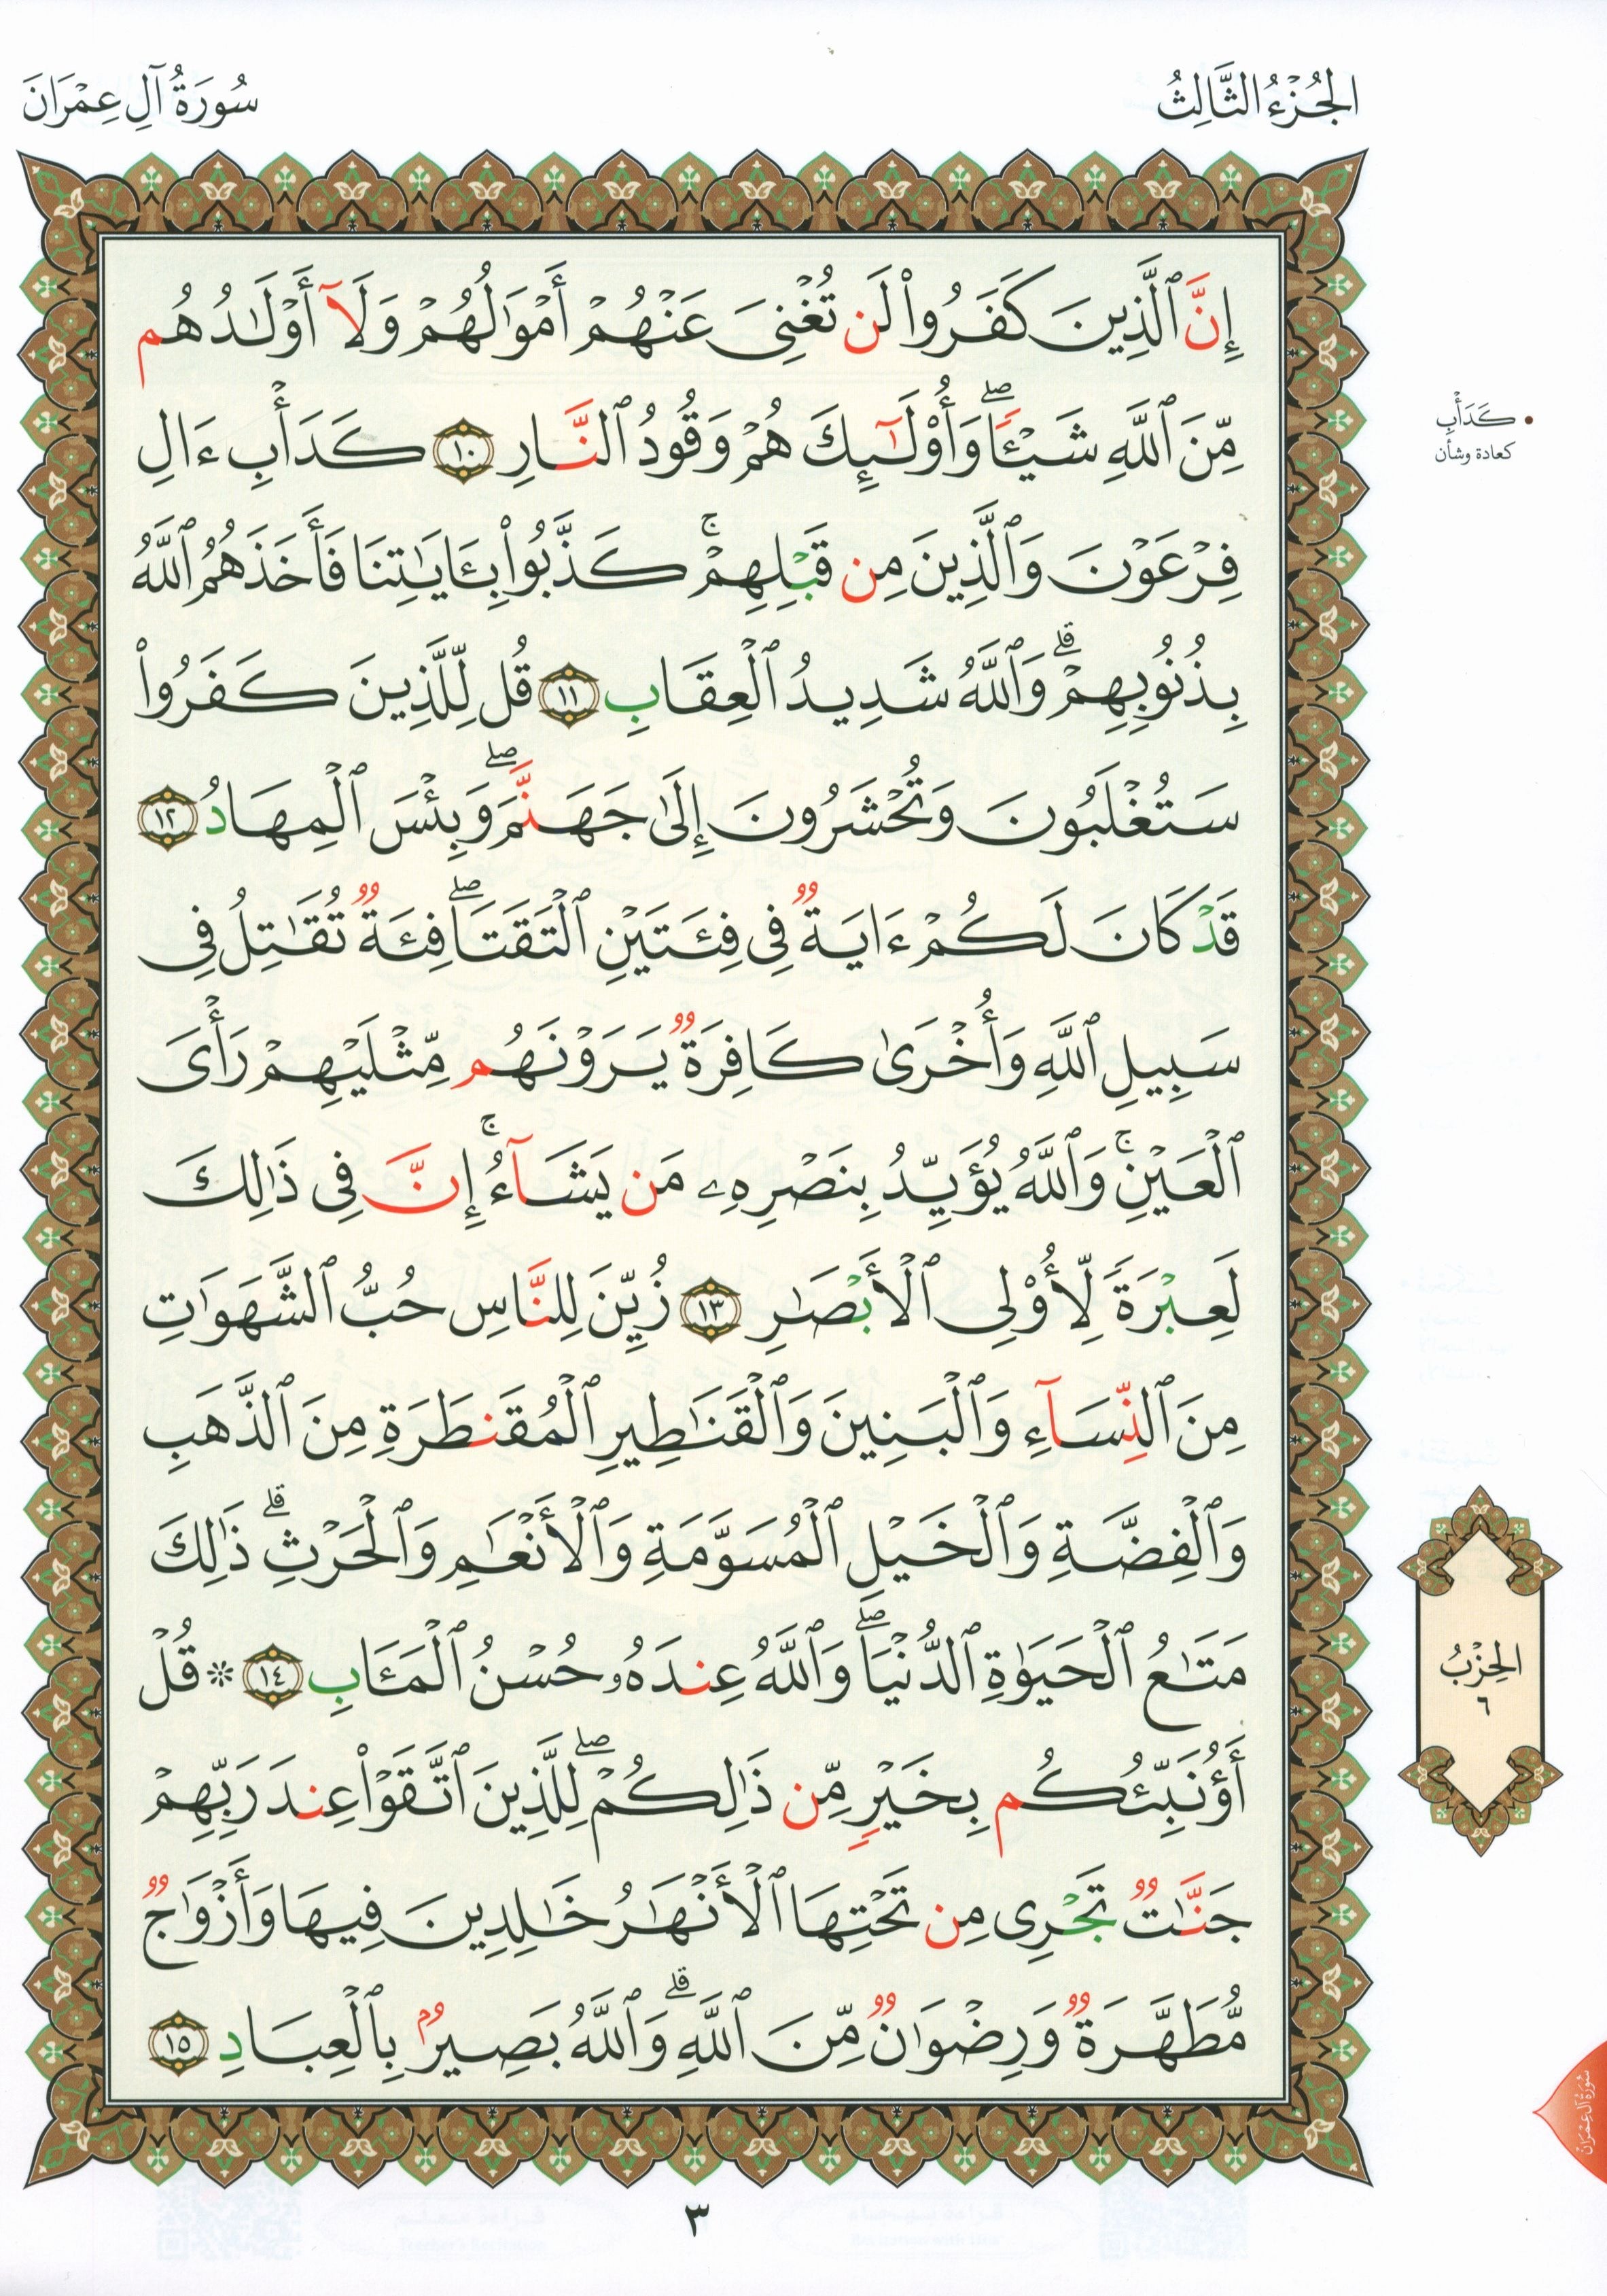 الجُزْءُ الثَّالِثُ
سُورَةُ آلِ عِمْرَانَ
إِنَّ ٱلَّذِينَ كَفَرُوا۟ لَن تُغْنِىَ عَنْهُمْ أَمْوَٰلُهُمْ وَلَآ أَوْلَـٰدُهُم
مِّنَ ٱللَّهِ شَيْـًٔا ۖ وَأُو۟لَـٰٓئِكَ هُمْ وَقُودُ ٱلنَّارِ ١٠ كَدَأْبِ ءَالِ
فِرْعَوْنَ وَٱلَّذِينَ مِن قَبْلِهِمْ ۚ كَذَّبُوا۟ بِـَٔايَـٰتِنَا فَأَخَذَهُمُ ٱللَّهُ
بِذُنُوبِهِمْ ۗ وَٱللَّهُ شَدِيدُ ٱلْعِقَابِ ١١ قُل لِّلَّذِينَ كَفَرُوا۟
سَتُغْلَبُونَ وَتُحْشَرُونَ إِلَىٰ جَهَنَّمَ ۖ وَبِئْسَ ٱلْمِهَادُ ١٢
قَدْ كَانَ لَكُمْ ءَايَةٌ فِى فِئَتَيْنِ ٱلْتَقَتَا ۖ فِئَةٌ تُقَـٰتِلُ فِى
سَبِيلِ ٱللَّهِ وَأُخْرَىٰ كَافِرَةٌ يَرَوْنَهُم مِّثْلَيْهِمْ رَأْىَ
ٱلْعَيْنِ ۚ وَٱللَّهُ يُؤَيِّدُ بِنَصْرِهِۦ مَن يَشَآءُ ۚ إِنَّ فِى ذَٰلِكَ
لَعِبْرَةً لِّأُو۟لِى ٱلْأَبْصَـٰرِ ١٣ زُيِّنَ لِلنَّاسِ حُبُّ ٱلشَّهَوَٰتِ
مِنَ ٱلنِّسَآءِ وَٱلْبَنِينَ وَٱلْقَنَـٰطِيرِ ٱلْمُقَنطَرَةِ مِنَ ٱلذَّهَبِ
وَٱلْفِضَّةِ وَٱلْخَيْلِ ٱلْمُسَوَّمَةِ وَٱلْأَنْعَـٰمِ وَٱلْحَرْثِ ۗ ذَٰلِكَ
مَتَـٰعُ ٱلْحَيَوٰةِ ٱلدُّنْيَا ۖ وَٱللَّهُ عِندَهُۥ حُسْنُ ٱلْمَـَٔابِ ١٤ ۞ قُلْ
أَؤُنَبِّئُكُم بِخَيْرٍ مِّن ذَٰلِكُمْ ۖ لِلَّذِينَ ٱتَّقَوْا۟ عِندَ رَبِّهِمْ
جَنَّـٰتٌ تَجْرِى مِن تَحْتِهَا ٱلْأَنْهَـٰرُ خَـٰلِدِينَ فِيهَا وَأَزْوَٰجٌ
مُّطَهَّرَةٌ وَرِضْوَٰنٌ مِّنَ ٱللَّهِ ۗ وَٱللَّهُ بَصِيرٌۢ بِٱلْعِبَادِ ١٥
• كَدَأْبِ
كعادة وشأن
الحِزْبُ
٦
سُورَةُ آلِ عِمْرَانَ
٣